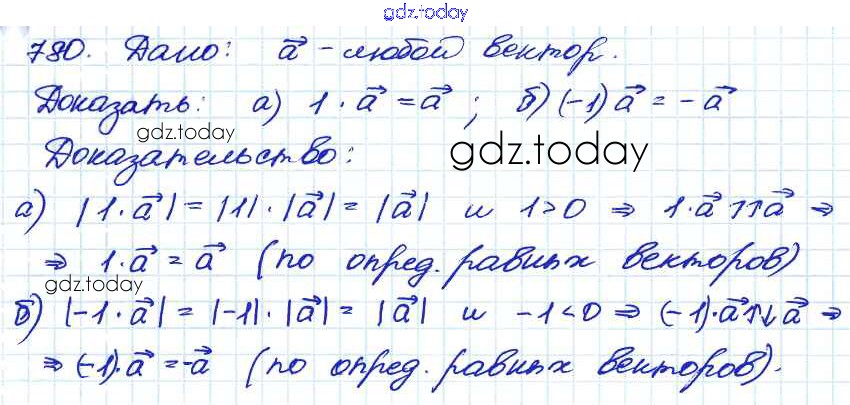 gdz.today
780. Дано: a⃗ - любой вектор.
Доказать: а) 1 · a⃗ = a⃗ ; б) (-1) a⃗ = - a⃗
gdz.today
Доказательство:
gdz.today
а) |1 · a⃗| = |1| · |a⃗| = |a⃗| и 1 > 0 ⇒ 1 · a⃗ ↑↑ a⃗ ⇒
⇒ 1 · a⃗ = a⃗ (по опред. равных векторов)
gdz.today
б) |-1 · a⃗| = |-1| · |a⃗| = |a⃗| и -1 < 0 ⇒ (-1) · a⃗ ↑↓ a⃗ ⇒
⇒ (-1) · a⃗ = -a⃗ (по опред. равных векторов).